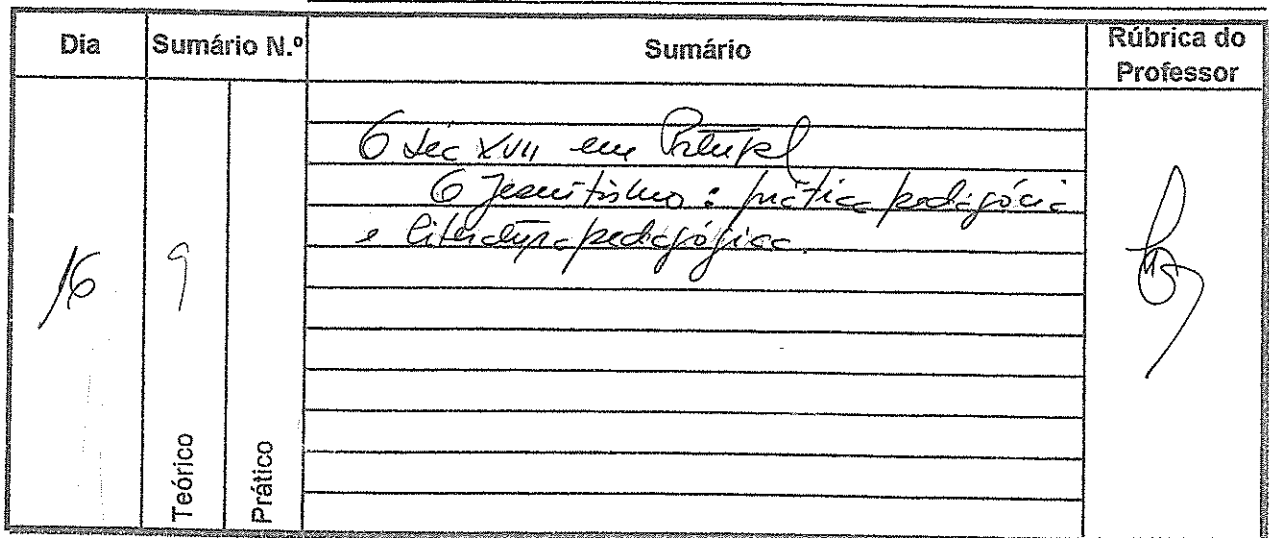 Dia Sumário N.º Sumário Rúbrica do Professor
O Séc XVII em Portugal
O Jesuitismo : prática pedagógica
e literatura pedagógica.
16 9
Teórico Prático